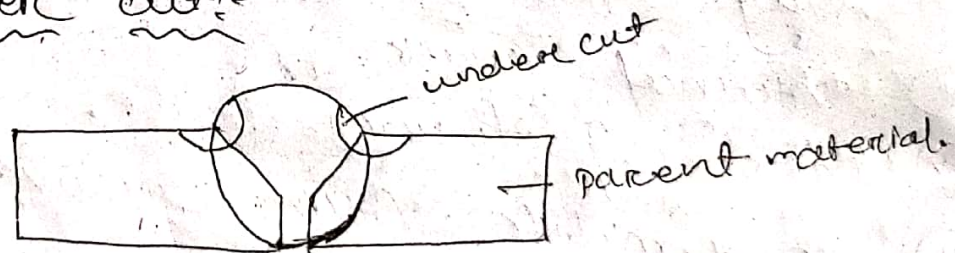 under cut
parent material.